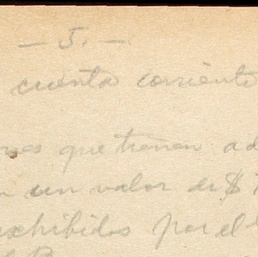 — 5. —
cuenta corriente
que tienen
un valor de $
exhibidos por el